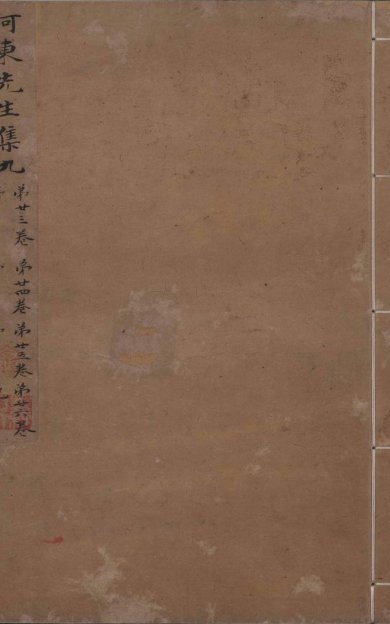 河東先生集九
第廿三卷 第廿四卷 第廿五卷 第廿六卷